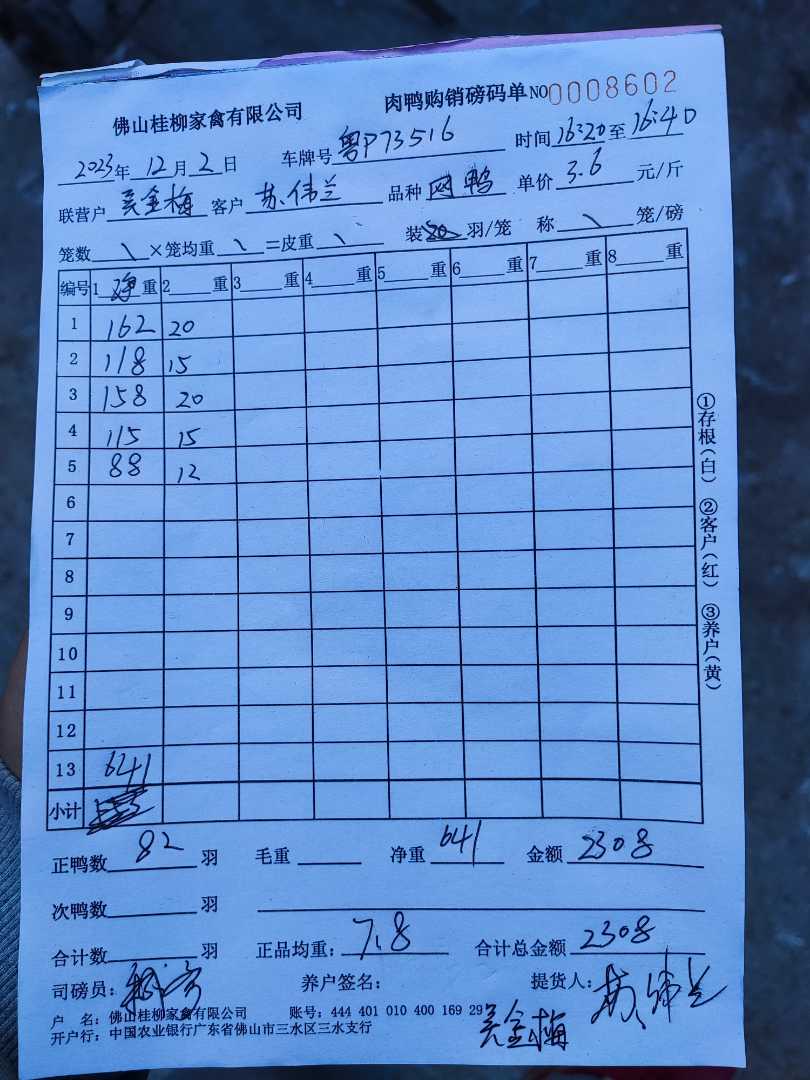 佛山桂柳家禽有限公司 肉鸭购销磅码单 NO 0008602
2023年12月2日 车牌号 粤P73516 时间 16:20 至 16:40
联营户 吴金梅 客户 苏伟兰 品种 网鸭 单价 3.6 元/斤
笼数 \ ×笼均重 \ =皮重 \ 装 20 羽/笼 称 \ 笼/磅
编号 1 净 重 2 重 3 重 4 重 5 重 6 重 7 重 8 重
1 162 20
2 118 15
3 158 20
4 115 15
5 88 12
6
7
8
9
10
11
12
13 641
小计
①存根(白) ②客户(红) ③养户(黄)
正鸭数 82 羽 毛重 净重 641 金额 2308
次鸭数 羽
合计数 羽 正品均重: 7.8 合计总金额 2308
司磅员: 养户签名: 吴金梅 提货人: 苏伟兰
户 名: 佛山桂柳家禽有限公司 账号: 444 401 010 400 169 29
开户行: 中国农业银行广东省佛山市三水区三水支行